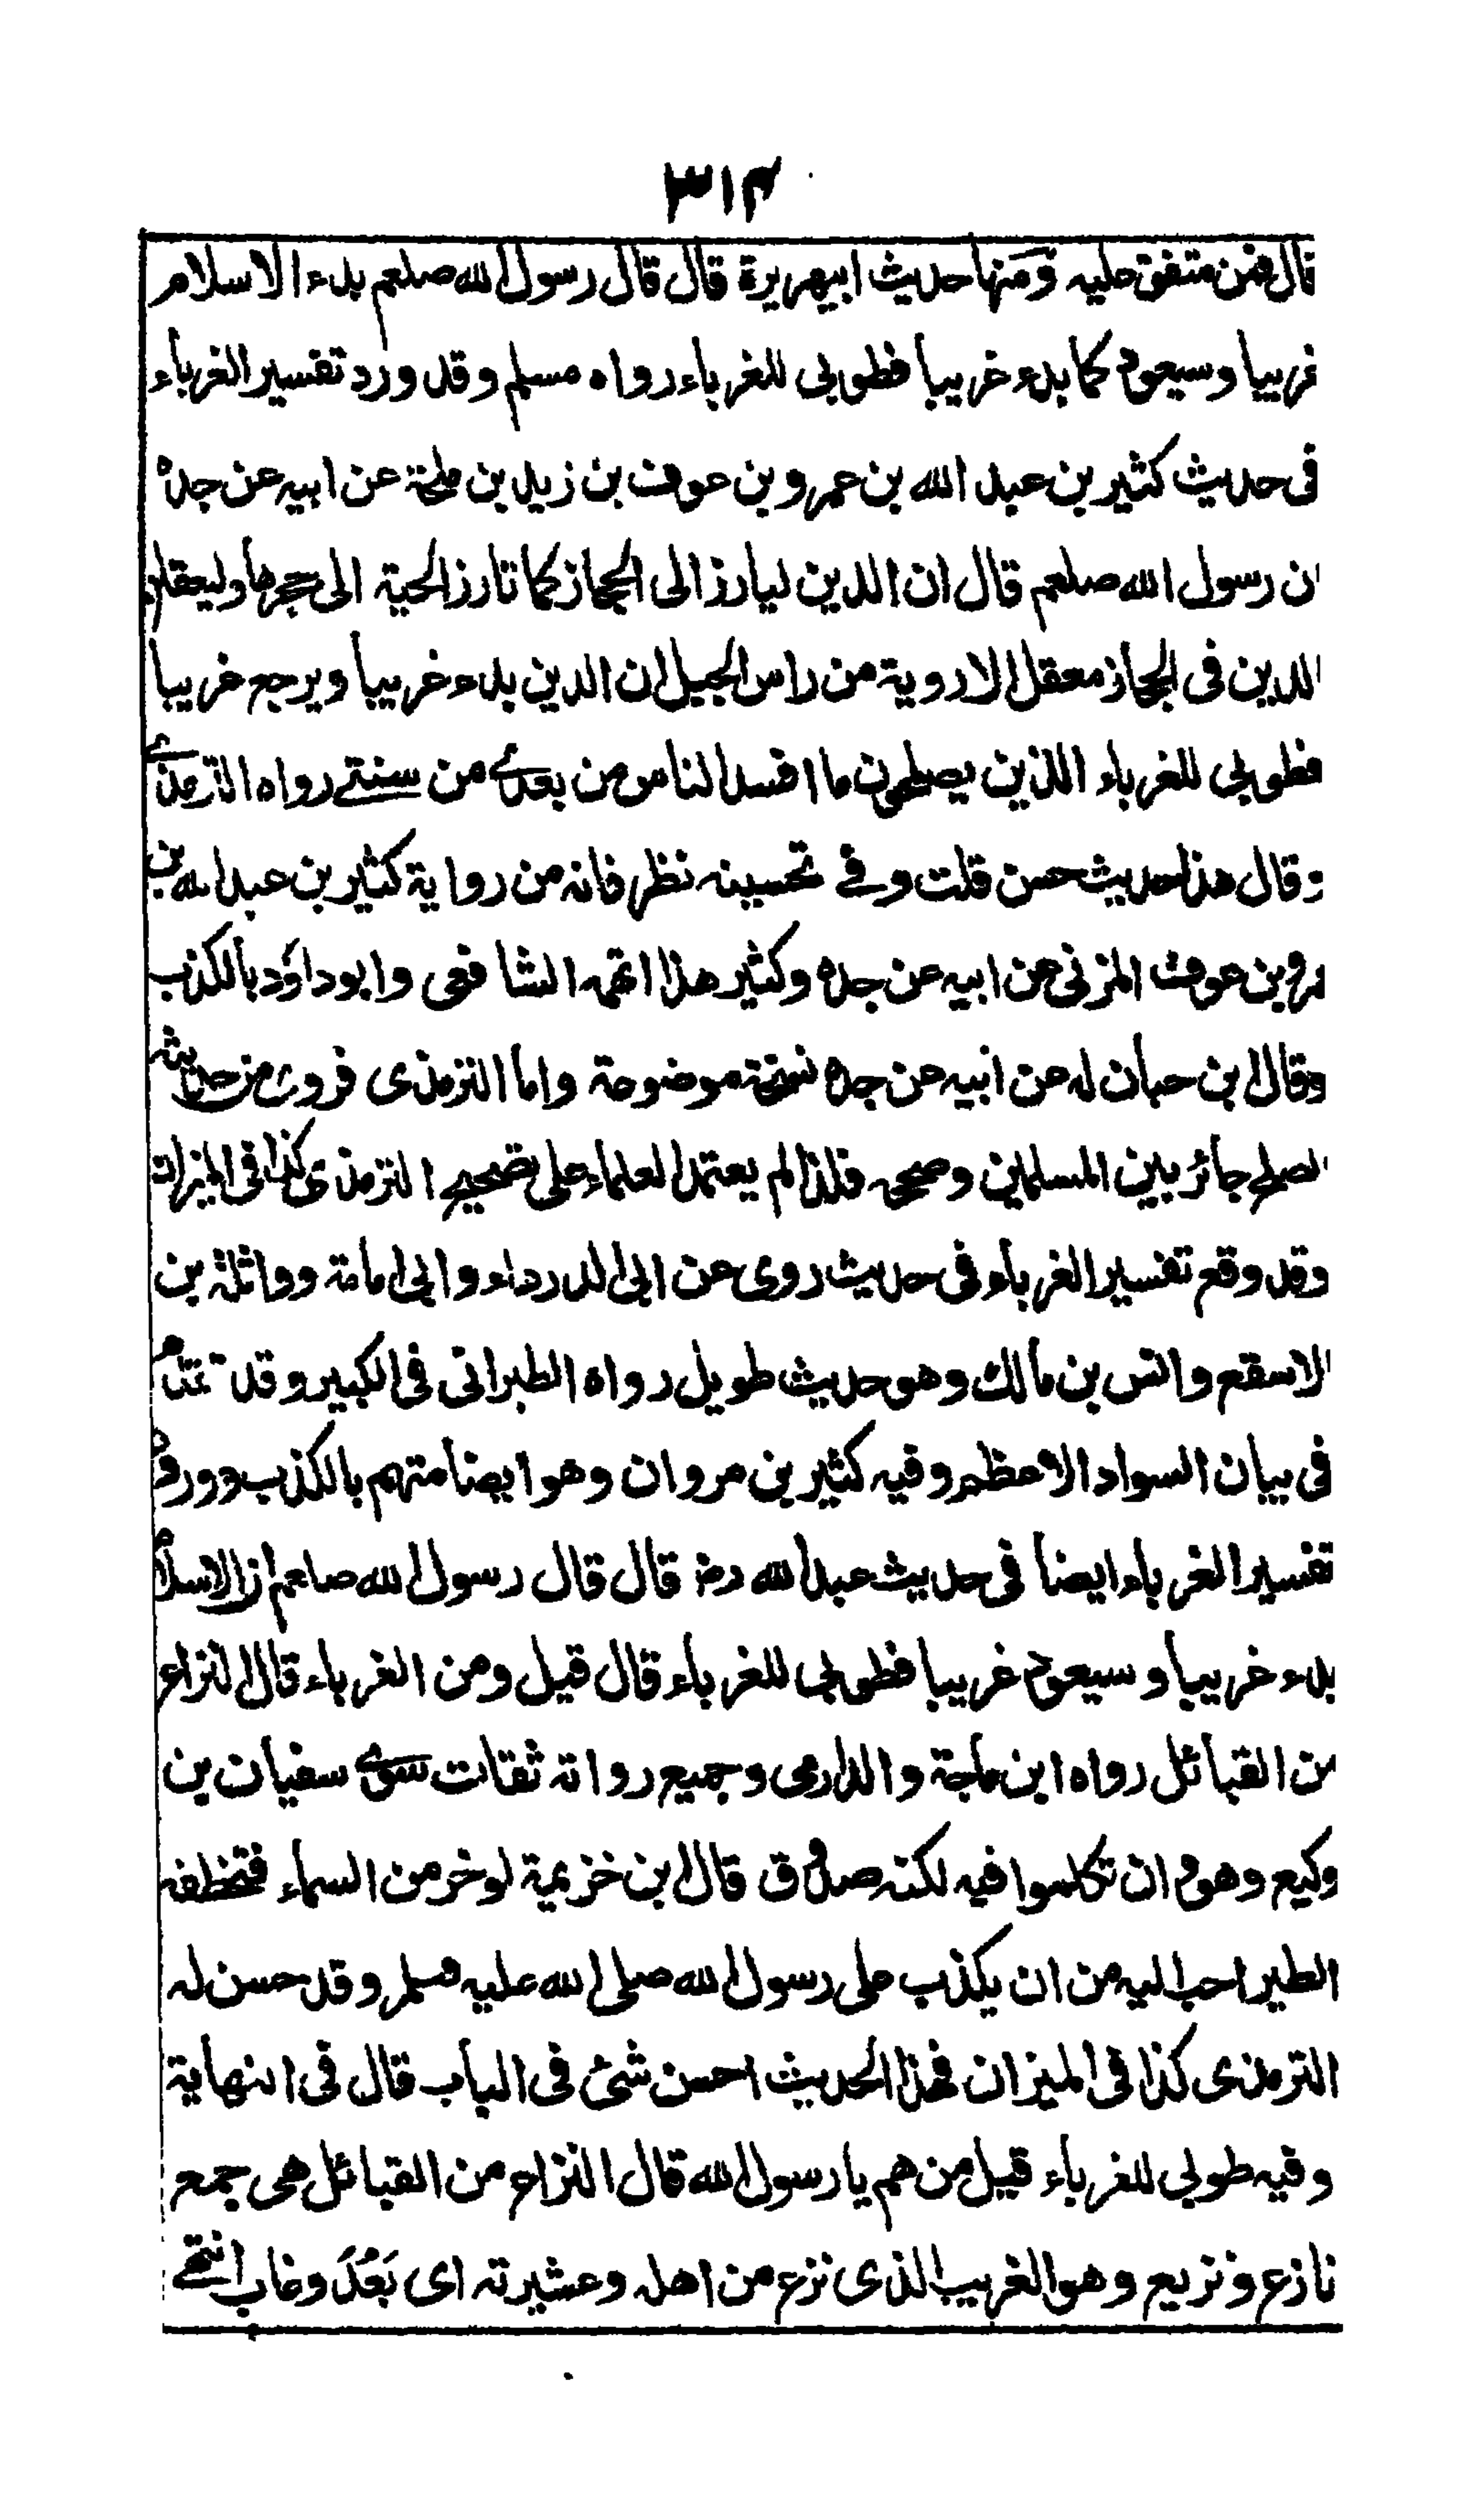 ٣١٤
قال فمن متفق عليه ومنها حديث ابيهريرة قال قال رسول الله صلعم بدء الاسلام
غريبا وسيعود كما بدء غريبا فطوبى للغرباء رواه مسلم وقد ورد تفسير الغرباء
فى حديث كثير بن عبد الله بن عمرو بن عوف بن زيد بن ملحة عن ابيه عن جده
ان رسول الله صلعم قال ان الدين ليارز الى الحجاز كما تارز الحية الى جحرها وليعقلن
الدين فى الحجاز معقل الاروية من راس الجبل ان الدين بدء غريبا ويرجع غريبا
فطوبى للغرباء الذين يصلحون ما افسد الناس من بعدے من سنتے رواه الترمذے
وقال هذا حديث حسن قلت وفے تحسينه نظر فانه من رواية كثير بن عبد الله بن
عمرو بن عوف المزنى عن ابيه عن جده وكثير هذا اتهمه الشافعى وابو داؤد بالكذب
وقال ابن حبان له عن ابيه عن جده نسخة موضوعة واما الترمذى فروى من حديثه
الصلح جائز بين المسلمين وصححه فلذا لم يعتمد العلماء على تصحيح الترمذى كذا فى الميزان
وقد وقع تفسير الغرباء فى حديث روى عن ابى الدرداء وابى امامة وواثلة بن
الاسقع وانس بن مالك وهو حديث طويل رواه الطبرانى فى الكبير وقد تقدم
فى بيان السواد الاعظم وفيه كثير بن مروان وهو ايضا متهم بالكذب وورد
تفسير الغرباء ايضا فى حديث عبد الله رض قال قال رسول الله صلعم ان الاسلام
بدء غريبا وسيعود غريبا فطوبى للغرباء قال قيل ومن الغرباء قال النزاع
من القبائل رواه ابن ماجة والدارمى وجميع رواته ثقات سوى سفيان بن
وكيع وهو وان تكلموا فيه لكنه صدوق قال ابن خزيمة لو خر من السماء فتخطفه
الطير احب اليه من ان يكذب على رسول الله صلى الله عليه وسلم وقد حسن له
الترمذى كذا فى الميزان فهذا الحديث احسن شئ فى الباب قال فى النهاية
وفيه طوبى للغرباء قيل من هم يا رسول الله قال النزاع من القبائل هى جمع
نازع ونزيع وهو الغريب الذى نزع من اهله وعشيرته اى بَعُدَ وغاب انتهے